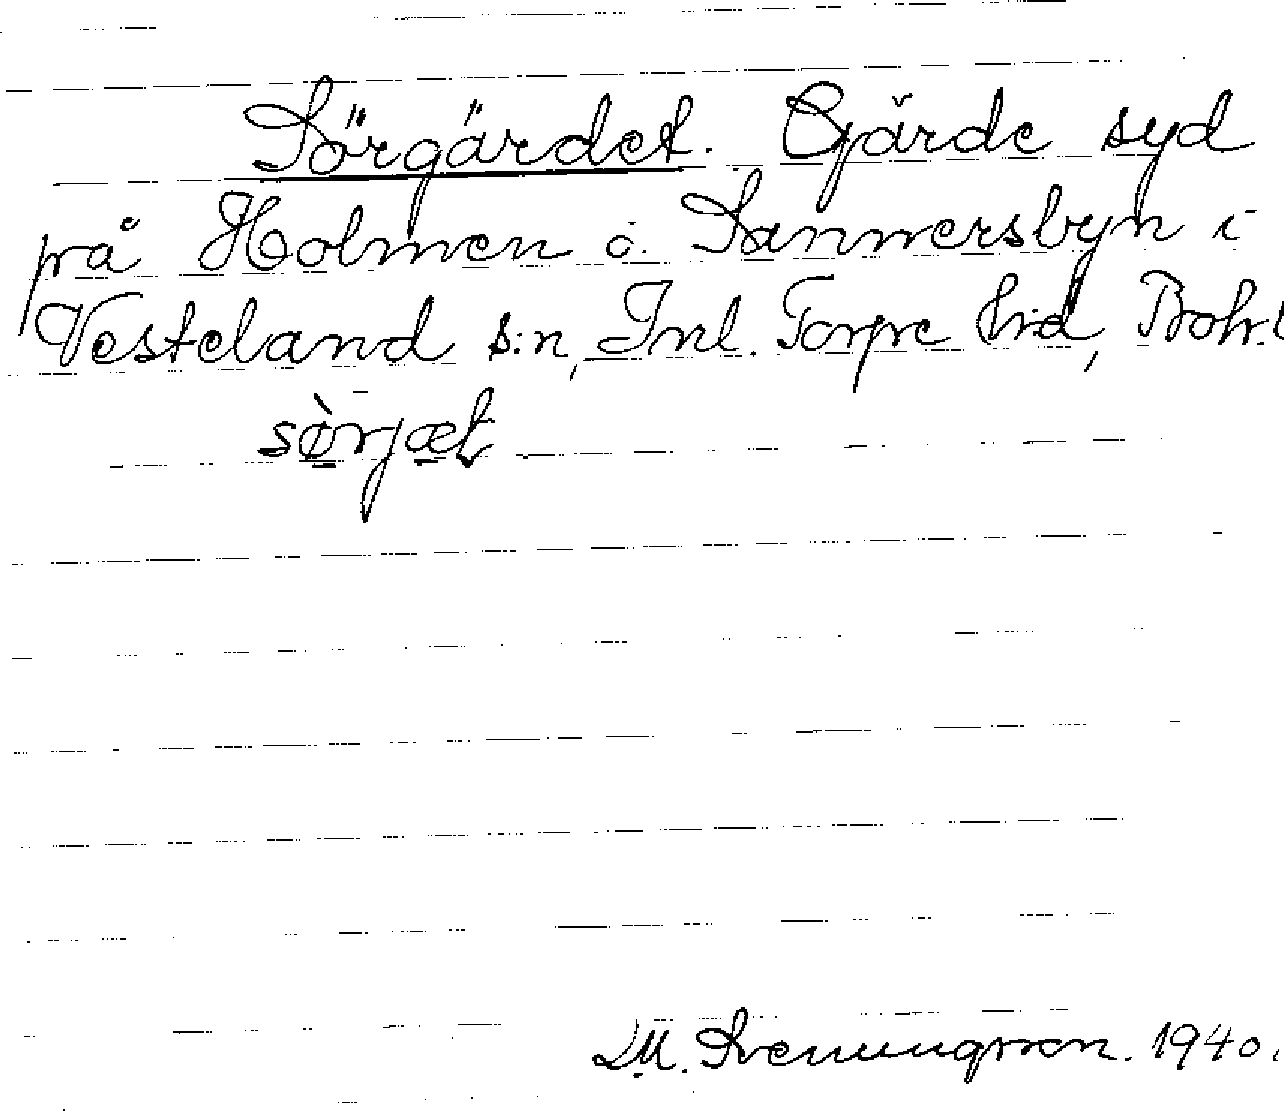 Sörgärdet. Gärde syd
på Holmen i Sannersbyn i
Vesteland s:n, Inl. Torpe h:d, Boh.l
sørjæt
M. Svenungsson. 1940.